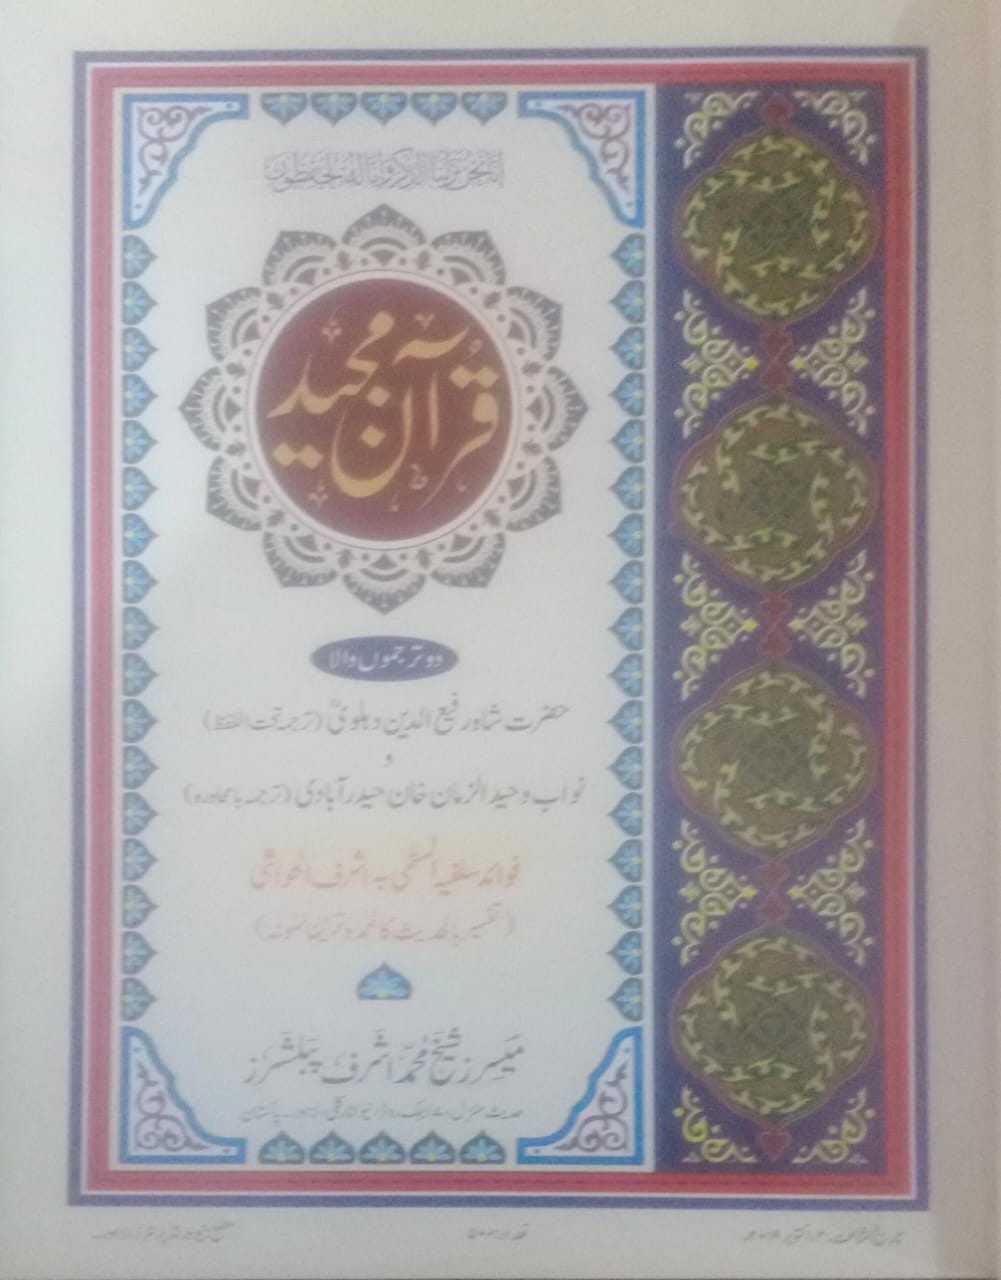 إنا نحن نزلنا الذكر وإنا له لحافظون
قرآن مجید
دو ترجموں والا
حضرت شاہ رفیع الدین دہلویؒ (ترجمہ تحت اللفظ)
و
نواب وحید الزمان خان حیدرآبادی (ترجمہ بامحاورہ)
فوائد سلفیہ المسمّٰی بہ اشرف الحواشی
(تفسیر بالحدیث کا عمدہ ترین نمونہ)
میسرز شیخ محمد اشرف پبلشرز
حدیث منزل ۔ ایبک روڈ، نیو انارکلی، لاہور۔ پاکستان
تعداد